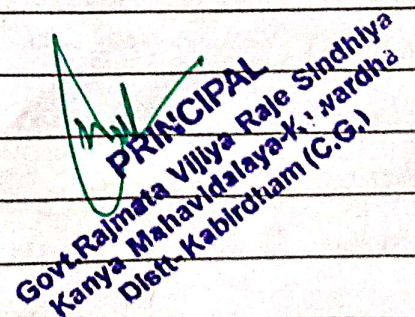 PRINCIPAL
Govt.Rajmata Vijiya Raje Sindhiya
Kanya Mahavidalaya-K. wardha
Distt-Kabirdham (C.G.)